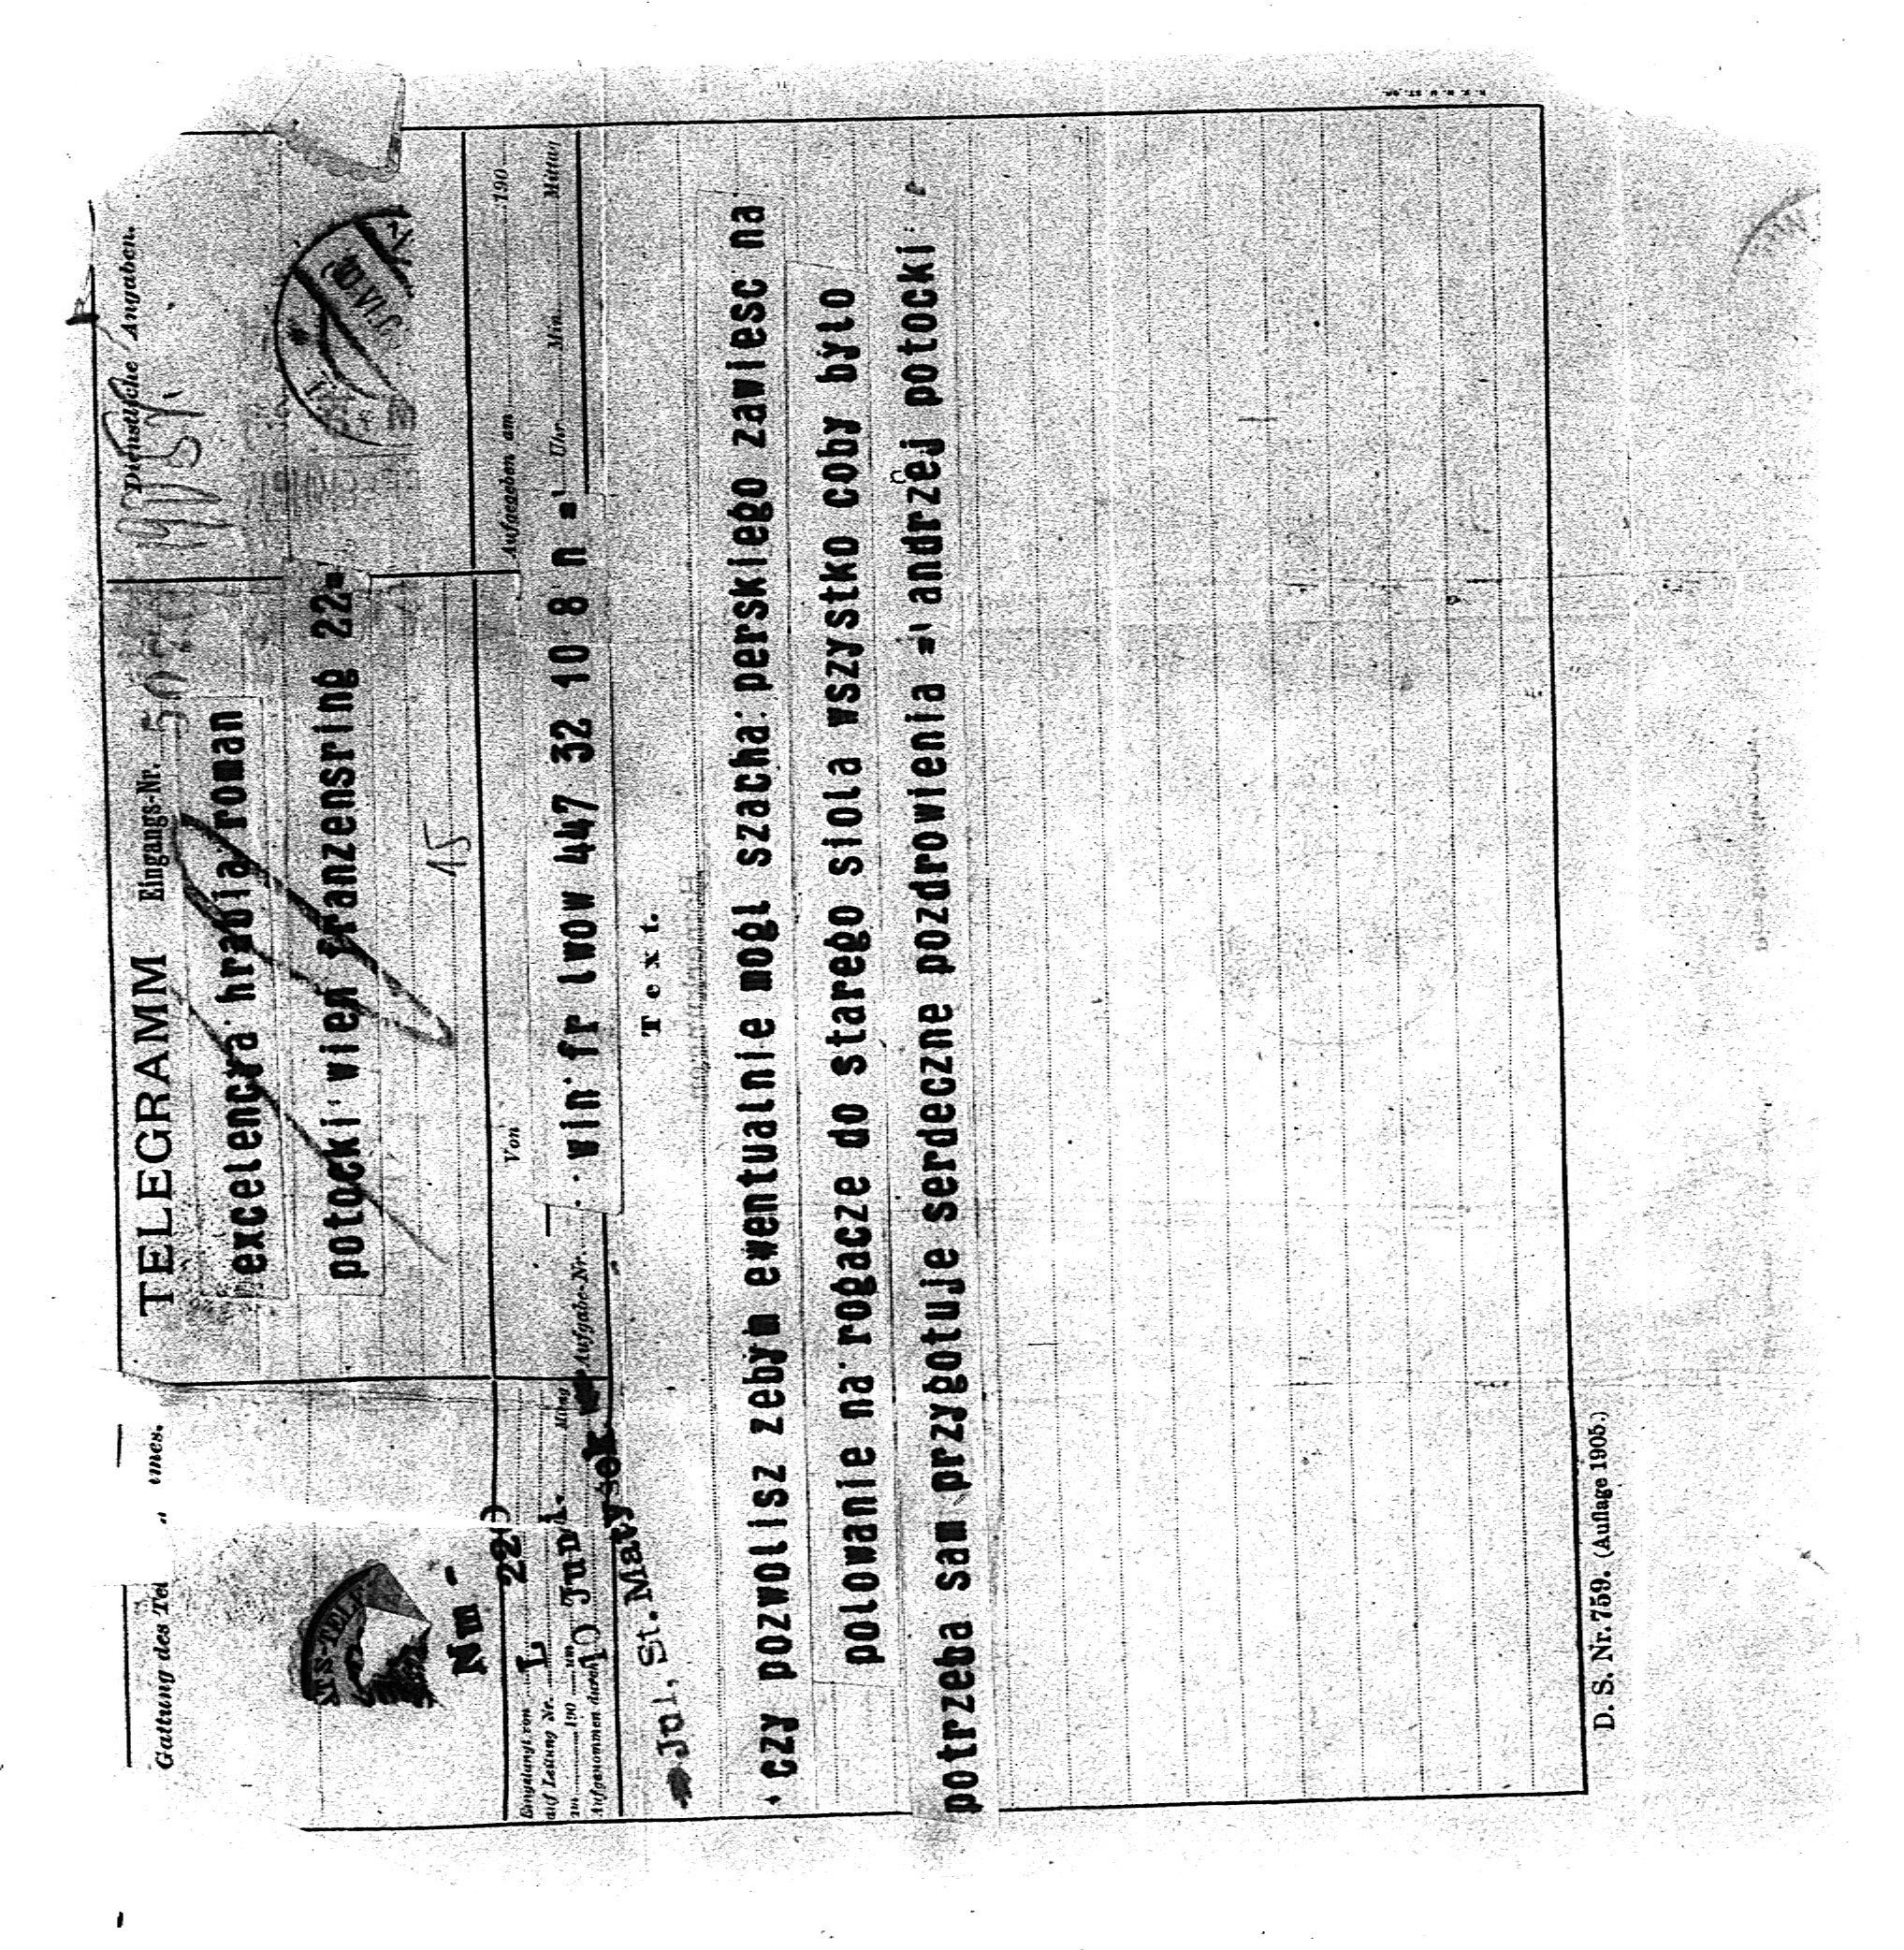 Gattung des Tel
TELEGRAMM Eingangs-Nr.
Dienstliche Angaben.
excelencya hrabia roman
potocki wien franzensring 22=
15
Nm -
Eingelangt von
auf Leitung Nr. L 220
am 190 um
10 Juni.
Aufgenommen durch
Jul, St. Matysek
Von
Aufgabe-Nr.
win fr lwow 447 32 10 8 n =
Aufgegeben am 190
Uhr Min. Mittag
Text.
czy pozwolisz zebym ewentualnie mogl szacha perskiego zawiesc na
polowanie na rogacze do starego siola wszystko coby bylo
potrzeba sam przygotuje serdeczne pozdrowienia = andrzej potocki
D. S. Nr. 759. (Auflage 1905.)